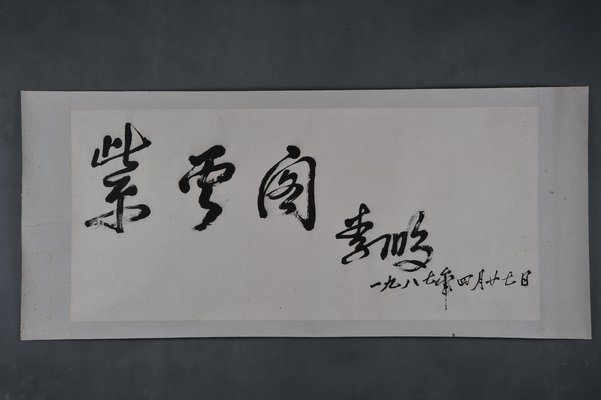 紫云阁
李
一九八七年四月廿七日